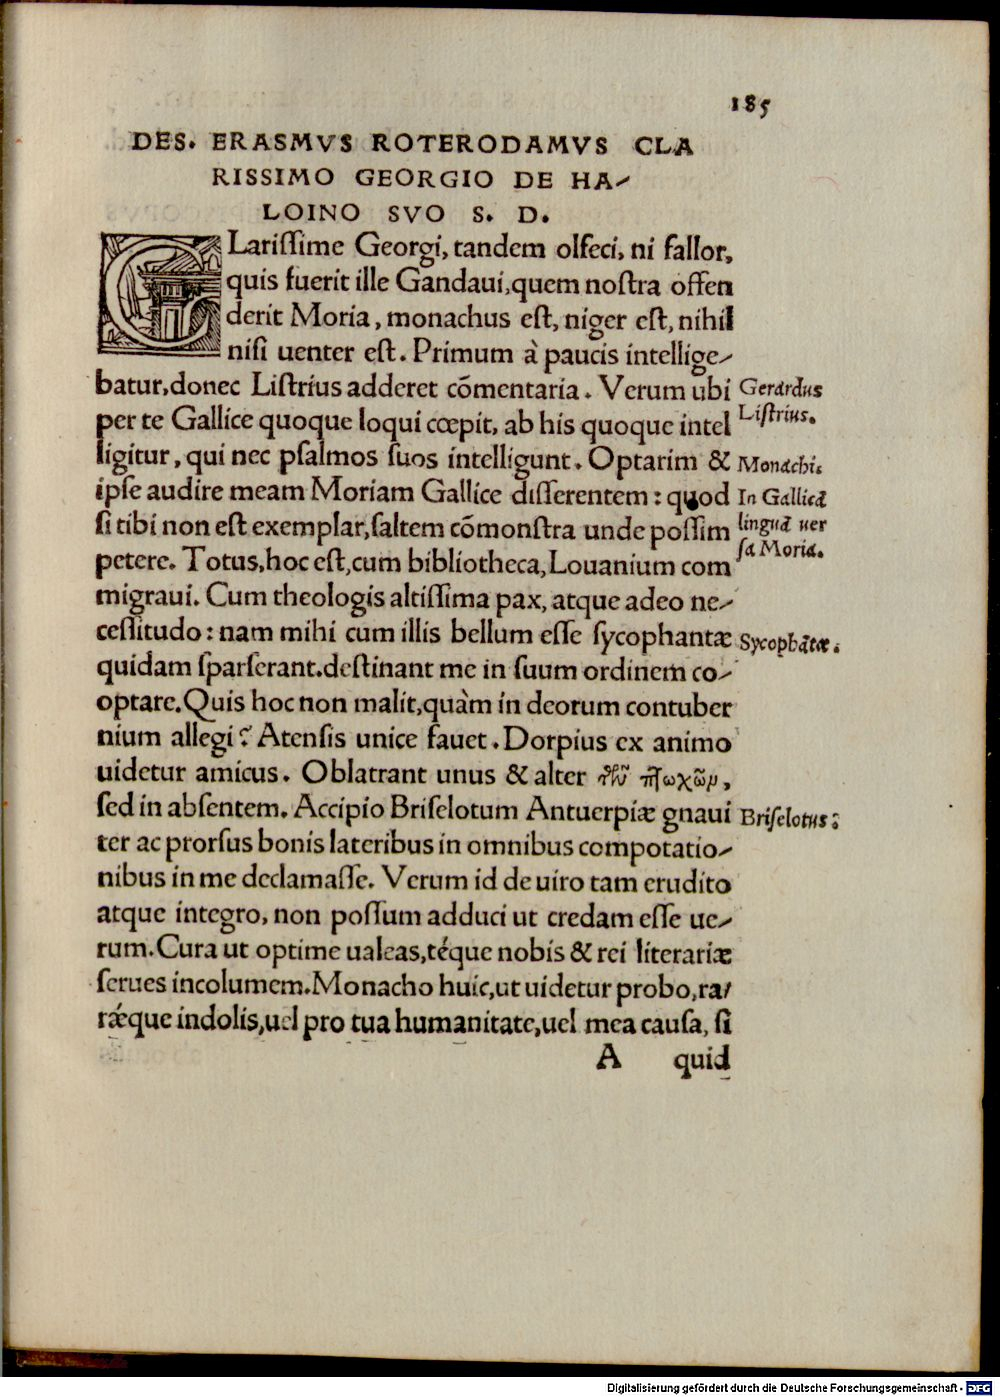 185
DES. ERASMVS ROTERODAMVS CLA
RISSIMO GEORGIO DE HA-
LOINO SVO S. D.
CLariſſime Georgi, tandem olfeci, ni fallor,
quis fuerit ille Gandaui, quem noſtra offen
derit Moria, monachus eſt, niger eſt, nihil
niſi uenter eſt. Primum à paucis intellige-
batur, donec Liſtrius adderet cōmentaria. Verum ubi
Gerardus
per te Gallice quoque loqui cœpit, ab his quoque intel
Liſtrius.
ligitur, qui nec pſalmos ſuos intelligunt. Optarim &
Monachi.
ipſe audire meam Moriam Gallice diſſerentem: quod
In Gallicā
ſi tibi non eſt exemplar, ſaltem cōmonſtra unde poſſim
linguā uer
petere. Totus, hoc eſt, cum bibliotheca, Louanium com
ſa Moria.
migraui. Cum theologis altiſſima pax, atque adeo ne-
ceſſitudo: nam mihi cum illis bellum eſſe ſycophantæ
Sycophātæ.
quidam ſparſerant. deſtinant me in ſuum ordinem co-
optare. Quis hoc non malit, quàm in deorum contuber
nium allegi? Atenſis unice fauet. Dorpius ex animo
uidetur amicus. Oblatrant unus & alter τῶν πτωχῶν,
ſed in abſentem. Accipio Briſelotum Antuerpiæ gnaui
Briſelotus:
ter ac prorſus bonis lateribus in omnibus compotatio-
nibus in me declamaſſe. Verum id de uiro tam erudito
atque integro, non poſſum adduci ut credam eſſe ue-
rum. Cura ut optime ualeas, téque nobis & rei literariæ
ſerues incolumem. Monacho huic, ut uidetur probo, ra-
rǽque indolis, uel pro tua humanitate, uel mea cauſa, ſi
A quid
Digitalisierung gefördert durch die Deutsche Forschungsgemeinschaft - DFG